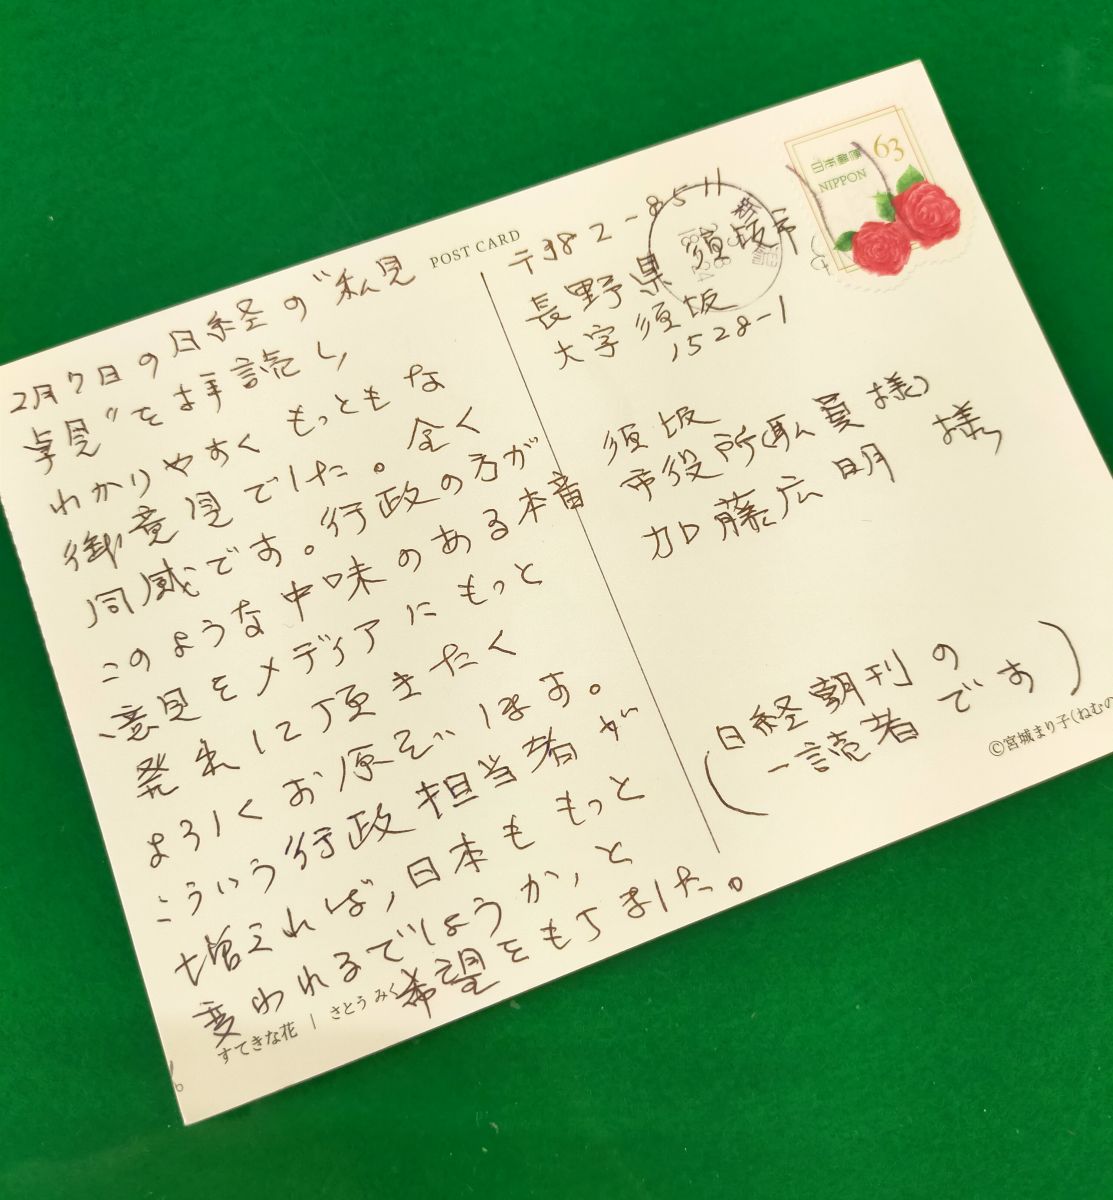 POST CARD
2月7日の日経の"私見
卓見"を拝読し、
わかりやすく もっともな
御意見でした。全く
同感です。行政の方が
このような中味のある本音
意見をメディアにもっと
発表して頂きたく
よろしくお願いします。
こういう行政担当者が
増えれば、日本ももっと
変われるでしょうか、と
希望をもちました。
すてきな花 | さとう みく
日本郵便
63
NIPPON
新潟
〒382-8511
長野県 須坂市
大字須坂
1528-1
須坂
市役所(職員様)
加藤広明 様
(日経朝刊の
一読者です)
©宮城まり子(ねむの